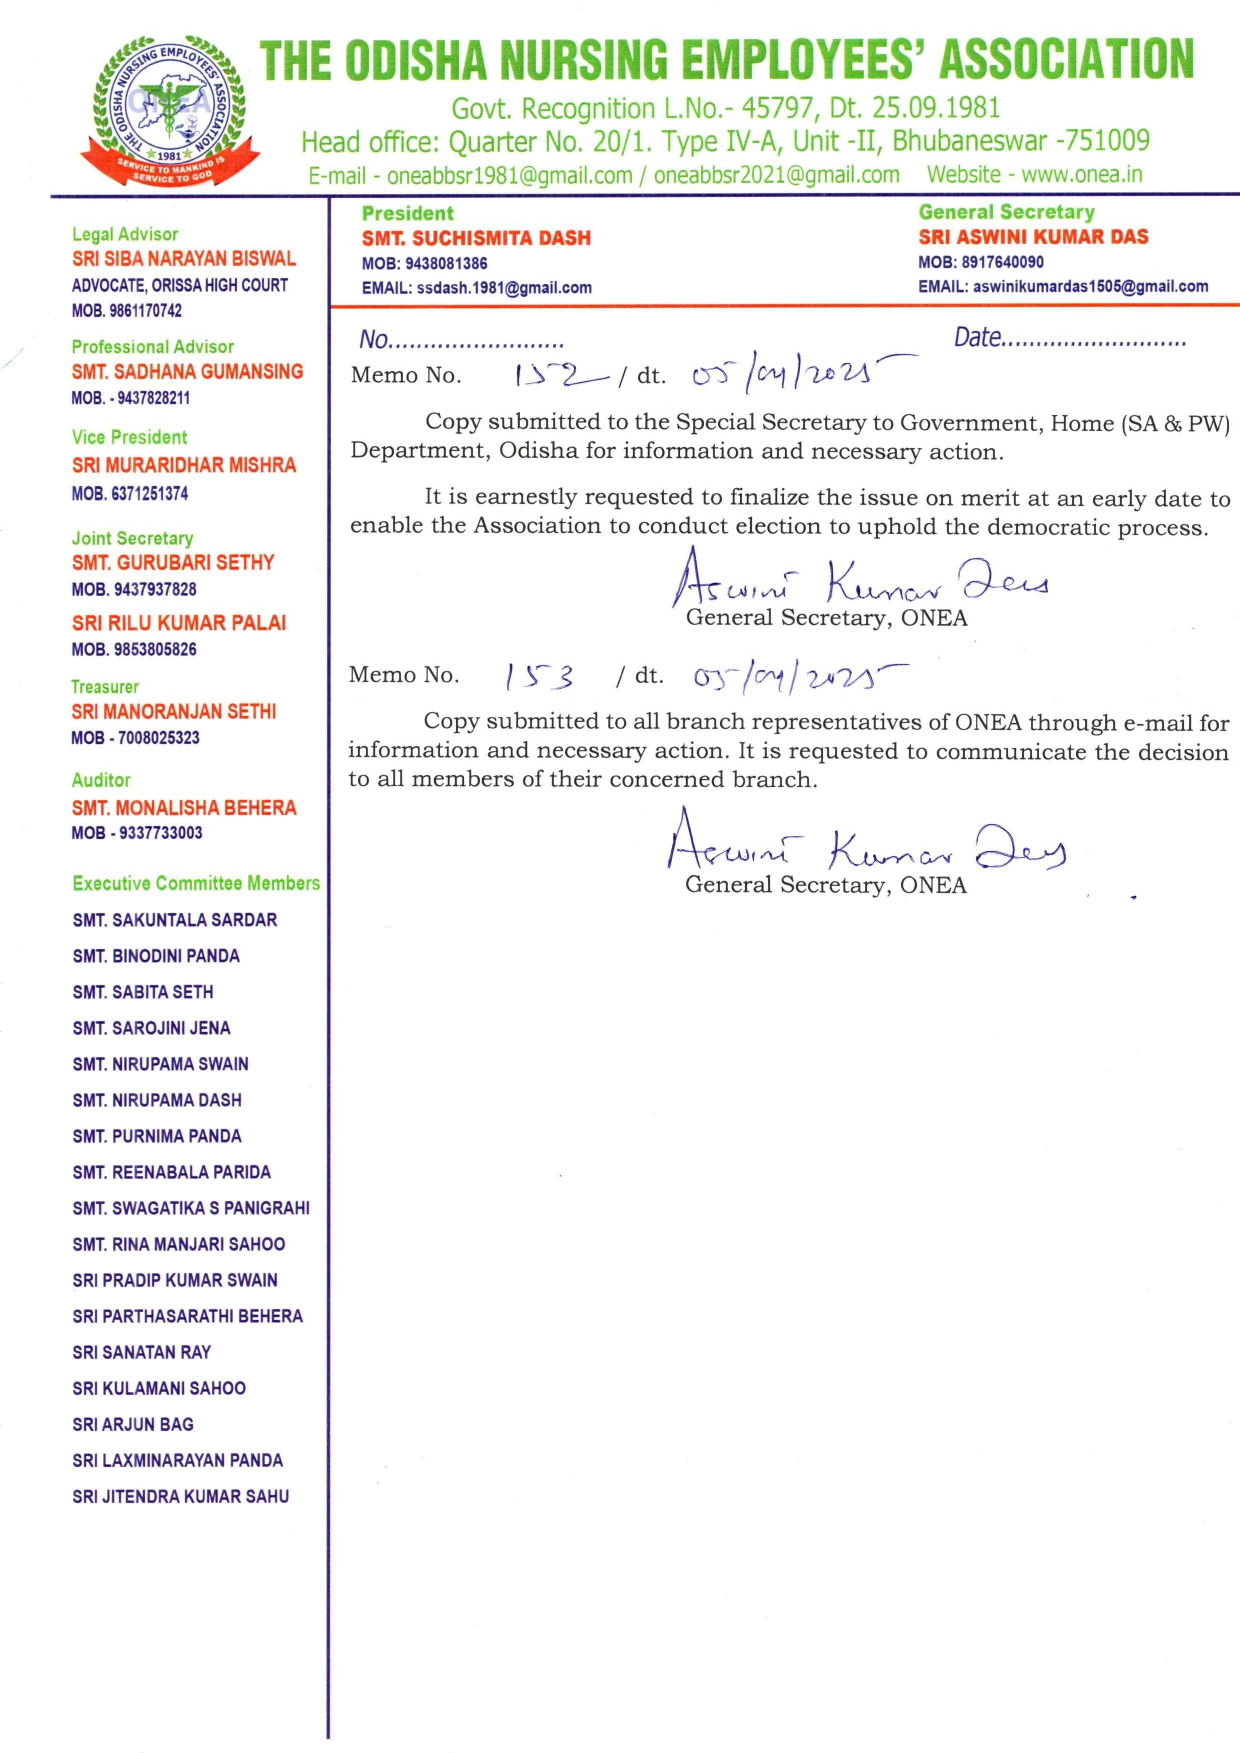 THE ODISHA NURSING EMPLOYEES' ASSOCIATION
Govt. Recognition L.No.- 45797, Dt. 25.09.1981
Head office: Quarter No. 20/1. Type IV-A, Unit -II, Bhubaneswar -751009
E-mail - oneabbsr1981@gmail.com / oneabbsr2021@gmail.com Website - www.onea.in
THE ODISHA NURSING EMPLOYEES' ASSOCIATION
ONEA
1981
SERVICE TO MANKIND IS
SERVICE TO GOD
President
SMT. SUCHISMITA DASH
MOB: 9438081386
EMAIL: ssdash.1981@gmail.com
General Secretary
SRI ASWINI KUMAR DAS
MOB: 8917640090
EMAIL: aswinikumardas1505@gmail.com
Legal Advisor
SRI SIBA NARAYAN BISWAL
ADVOCATE, ORISSA HIGH COURT
MOB. 9861170742
Professional Advisor
SMT. SADHANA GUMANSING
MOB. - 9437828211
Vice President
SRI MURARIDHAR MISHRA
MOB. 6371251374
Joint Secretary
SMT. GURUBARI SETHY
MOB. 9437937828
SRI RILU KUMAR PALAI
MOB. 9853805826
Treasurer
SRI MANORANJAN SETHI
MOB - 7008025323
Auditor
SMT. MONALISHA BEHERA
MOB - 9337733003
Executive Committee Members
SMT. SAKUNTALA SARDAR
SMT. BINODINI PANDA
SMT. SABITA SETH
SMT. SAROJINI JENA
SMT. NIRUPAMA SWAIN
SMT. NIRUPAMA DASH
SMT. PURNIMA PANDA
SMT. REENABALA PARIDA
SMT. SWAGATIKA S PANIGRAHI
SMT. RINA MANJARI SAHOO
SRI PRADIP KUMAR SWAIN
SRI PARTHASARATHI BEHERA
SRI SANATAN RAY
SRI KULAMANI SAHOO
SRI ARJUN BAG
SRI LAXMINARAYAN PANDA
SRI JITENDRA KUMAR SAHU
No......................... Date..........................
Memo No. 152 / dt. 05/04/2025
Copy submitted to the Special Secretary to Government, Home (SA & PW)
Department, Odisha for information and necessary action.
It is earnestly requested to finalize the issue on merit at an early date to
enable the Association to conduct election to uphold the democratic process.
Aswini Kumar Das
General Secretary, ONEA
Memo No. 153 / dt. 05/04/2025
Copy submitted to all branch representatives of ONEA through e-mail for
information and necessary action. It is requested to communicate the decision
to all members of their concerned branch.
Aswini Kumar Das
General Secretary, ONEA